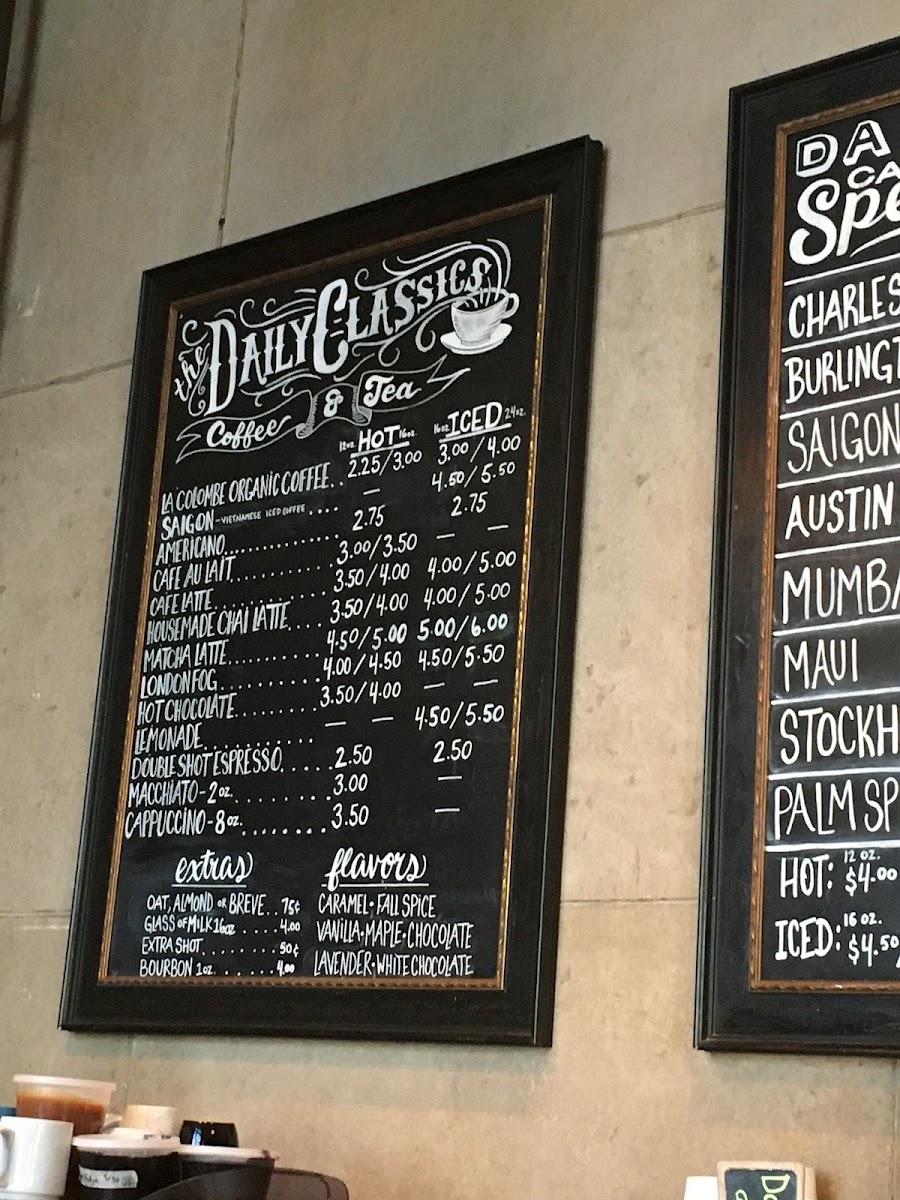 the Daily Classics
Coffee & Tea
12oz. HOT 16oz. 16oz. ICED 24oz.
LA COLOMBE ORGANIC COFFEE.. 2.25/3.00 3.00/4.00
SAIGON - VIETNAMESE ICED COFFEE .... — 4.50/5.50
AMERICANO............... 2.75 2.75
CAFE AU LAIT............ 3.00/3.50 — —
CAFE LATTE.............. 3.50/4.00 4.00/5.00
HOUSEMADE CHAI LATTE.... 3.50/4.00 4.00/5.00
MATCHA LATTE........... 4.50/5.00 5.00/6.00
LONDON FOG............ 4.00/4.50 4.50/5.50
HOT CHOCOLATE.......... 3.50/4.00 — —
LEMONADE............. — — 4.50/5.50
DOUBLE SHOT ESPRESSO...... 2.50 2.50
MACCHIATO - 2oz......... 3.00 —
CAPPUCCINO - 8oz......... 3.50 —
extras
OAT, ALMOND OR BREVE.. 75¢
GLASS OF MILK 16oz ..... 4.00
EXTRA SHOT.......... 50¢
BOURBON 1oz........ 4.00
flavors
CARAMEL • FALL SPICE
VANILLA • MAPLE • CHOCOLATE
LAVENDER • WHITE CHOCOLATE
DA
CA
Spe
CHARLES
BURLINGT
SAIGON
AUSTIN
MUMBA
MAUI
STOCKH
PALM SP
HOT: 12 OZ. $4.00
ICED: 16 OZ. $4.50/